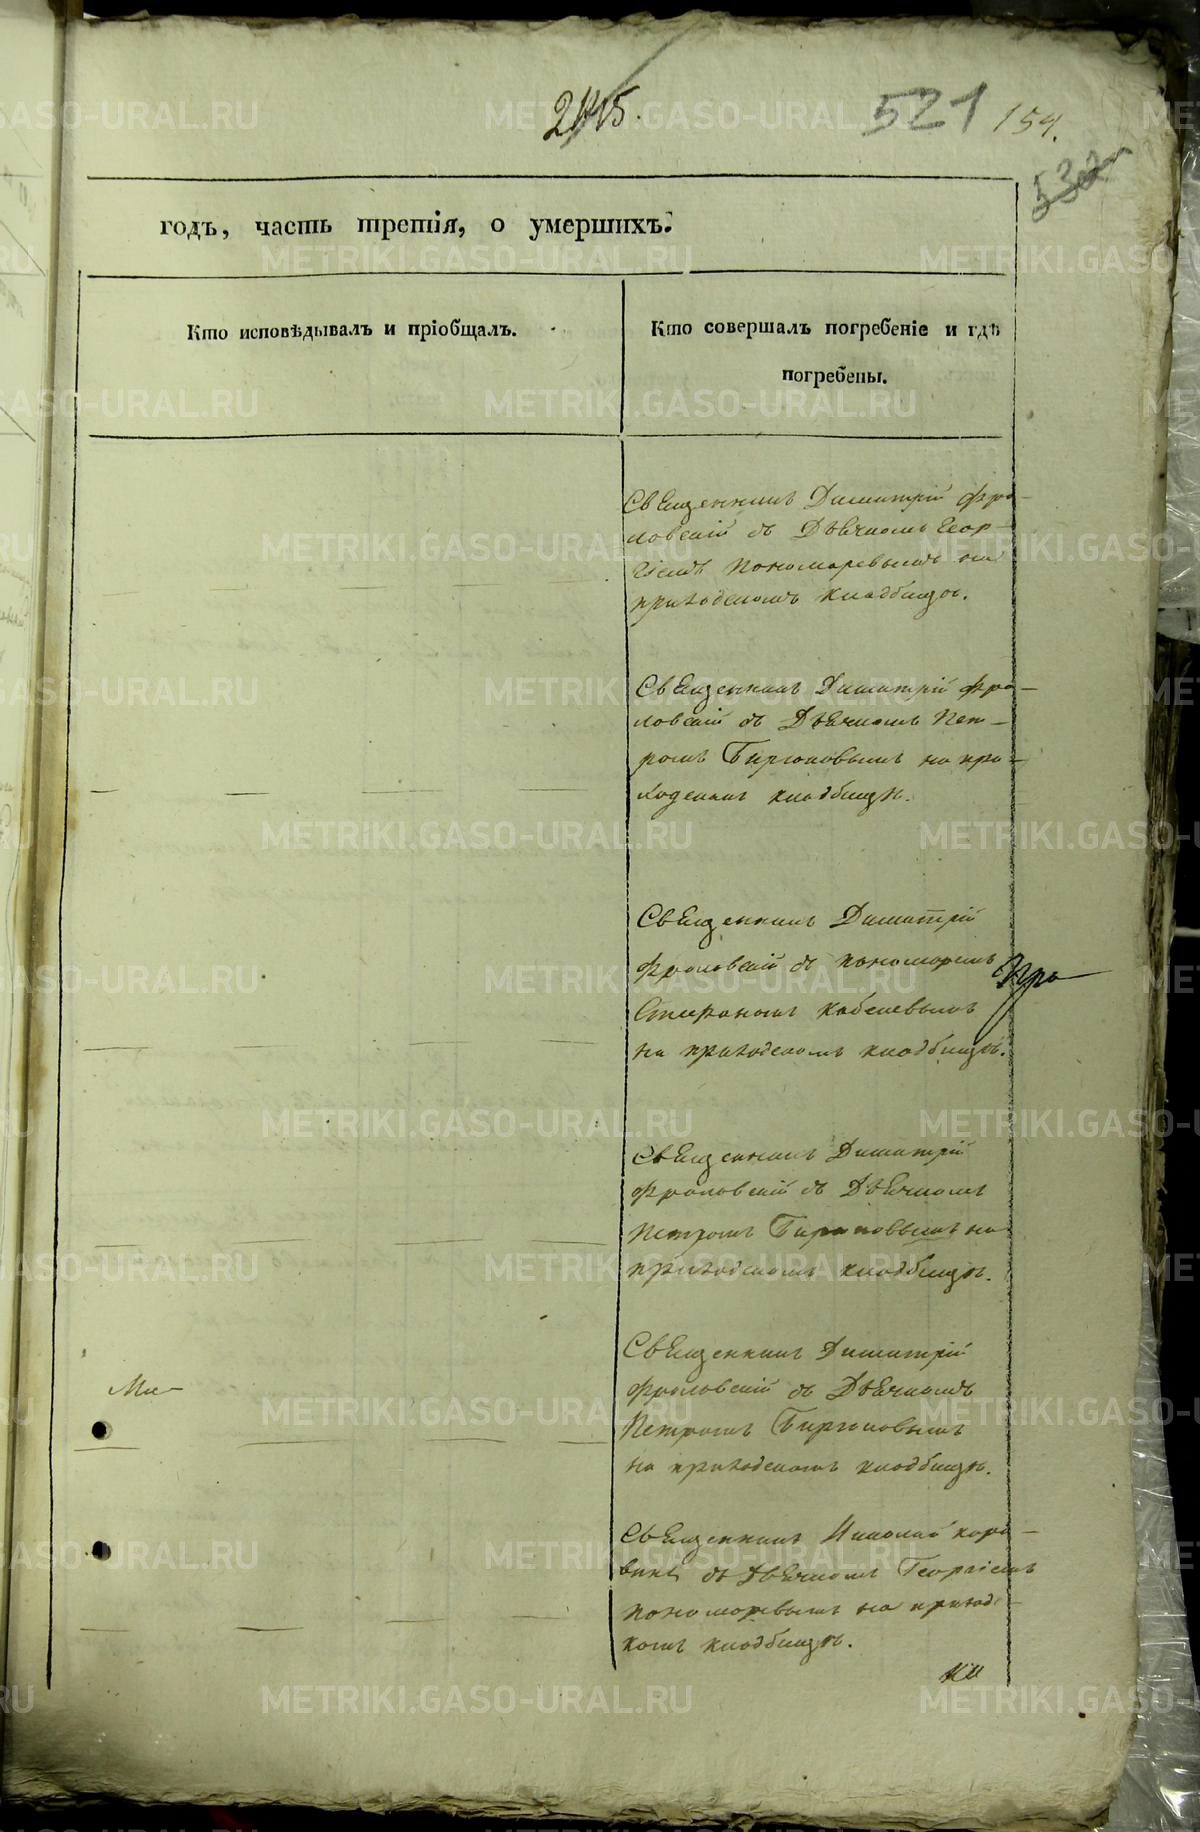 245.
521
154.
532
годъ, часть третія, о умершихъ.
Кто исповѣдывалъ и пріобщалъ.
Кто совершалъ погребеніе и гдѣ
погребены.
Священникъ Димитрій Фро-
ловскій съ Дьячкомъ Геор-
гіемъ Пономаревымъ на
приходскомъ кладбищѣ.
Священникъ Димитрій Фро-
ловскій съ Дьячкомъ Пет-
ромъ Бирюковымъ на при-
ходскомъ кладбищѣ.
Священникъ Димитрій
Фроловскій съ пономаремъ
Стефаномъ
на приходскомъ кладбищѣ.
Священникъ Димитрій
Фроловскій съ Дьячкомъ
Петромъ Бирюковымъ на
приходскомъ кладбищѣ.
Священникъ Димитрій
Фроловскій съ Дьячкомъ
Петромъ Бирюковымъ
на приходскомъ кладбищѣ.
Священникъ Николай Коро-
винъ съ Дьячкомъ Георгіемъ
Пономаревымъ на приход-
комъ кладбищѣ.
METRIKI.GASO-URAL.RU